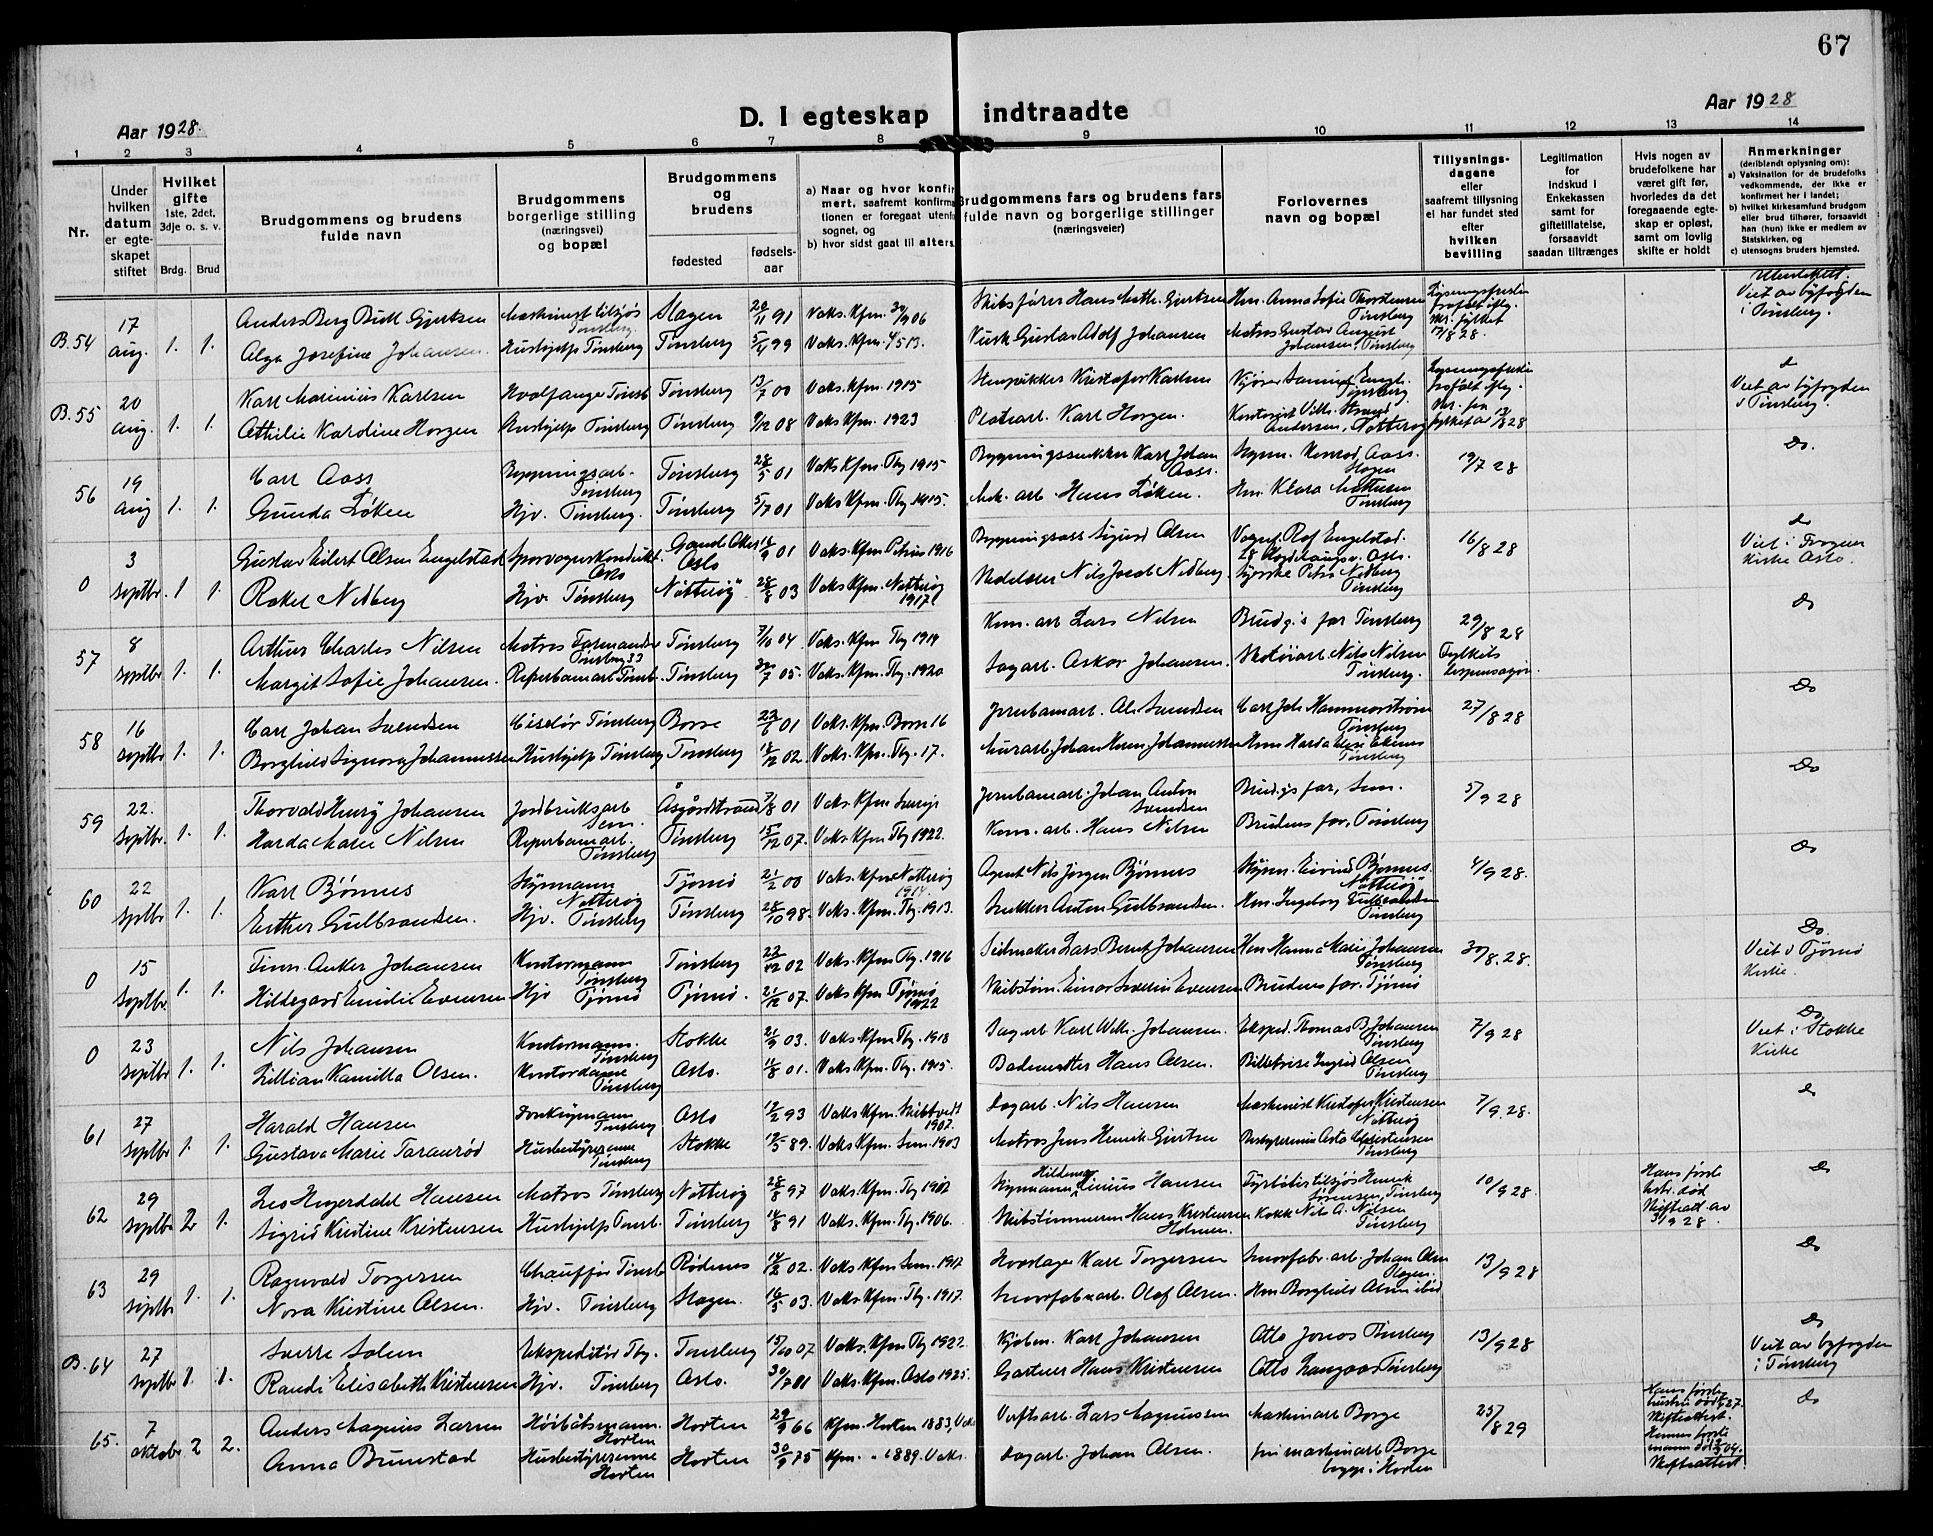 67
Aar 1928.
D. I egteskap indtraadte
Aar 1928
1 2 3 4 5 6 7 8 9 10 11 12 13 14
Nr.
Under hvilken datum er egteskapet stiftet
Hvilket gifte
1ste, 2det, 3dje o. s. v.
Brdg. Brud
Brudgommens og brudens fulde navn
Brudgommens borgerlige stilling (næringsvei) og bopæl
Brudgommens og brudens
fødested
fødsels-aar
a) Naar og hvor konfir
mert, saafremt konfirma
tionen er foregaat utenfo
sognet, og
b) hvor sidst gaat til alters.
Brudgommens fars og brudens fars
fulde navn og borgerlige stillinger
(næringsveier)
Forlovernes navn og bopæl
Tillysnings-dagene
eller
saafremt tillysning
ei har fundet sted
efter
hvilken
bevilling
Legitimation
for
indskud i
Enkekassen
samt for
giftetillatelse,
forsaavidt
saadan tiltrænges
Hvis nogen av
brudefolkene har
været gift før,
hvorledes da det
foregaaende egte-
skap er opløst,
samt om lovlig
skifte er holdt
Anmerkninger
(deriblandt oplysning om):
a) Vaksination for de brudefolks
vedkommende, der ikke er
konfirmert her i landet;
b) hvilket kirkesamfund brudgom
eller brud tilhører, forsaavidt
han (hun) ikke er medlem av
Statskirken, og
c) utensogns bruders hjemsted.
B.54 17 Aug. 1. 1.
Anders Berg Bull Gjertsen Maskinist tilsjøs Tønsberg. Slagen 20/11 91 Vaks. Kfm. 30/9 06 Skibsfører Hans Math. Gjertsen Hm. Anna Sofie Thorstensen Tønsberg
Alga Josefine Johansen. Hushjelp Tønsberg Tønsberg 99 Vaks. Kfm. Gustav Adolf Johansen Matros Gustav August Johansen, Tønsberg
Viet av byfogden i Tønsberg.
B.55 20 Aug. 1. 1.
Karl Marinius Karlsen Hvalfanger Tønsb Tønsberg 13/7 00 Vaks. Kfm. 1915 Kristofer Karlsen Tønsberg
Othilie Kardine Horgen Hushjelp Tønsberg Tønsberg 9/12 08 Vaks Kfm. 1923 Platearb. Karl Horgen. Kontorist Vilh. Strand Andersen, Nøtterøy
Viet av byfogden i Tønsberg.
56 19 Aug 1. 1.
Carl Aass Bygningsarb. Tønsberg Tønsberg 28/5 01 Vaks Kfm. Tbg 1915 Bygningssnekker Karl Johan Aass. Konrad Aass. Slagen 19/7 28 Do.
Gunda Løken Hjv. Tønsberg. Tønsberg 5/7 01 Vaks Kfm. Tbg 1915. Mek. arb. Hans Løken. Hm. Klara Mathisen Tønsberg
0 3 Septbr. 1 1.
Gustav Eilert Olsen Engelstad Sporvognskonduktør Oslo Oslo 01 Vaks. Kfm Petrus 1916 Sigurd Olsen Vognf. Rolf Engelstad. Oslo. 16/8 28 Viet i Frogner Kirke Oslo.
Rakel Nedberg Hjv. Tønsberg Nøtterøy 28/8 03 Vaks Kfm. Nøtterøy 1917 Nils Jacob Nedberg Syerske Petra Nedberg Tønsberg
57 8 Septbr 1. 1.
Arthur Charles Nilsen Matros Farmandsv Tønsberg 33 Tønsberg 7/10 04 Vaks. Kfm Tbg 1919 Kom. arb Lars Nilsen Brudg.s far Tønsberg 29/8 28 Do
Margit Sofie Johansen. Reperbanearb Tønsb. Tønsberg 05. Vaks. Kfm. Tbg. 1920 Sagarb. Oskar Johansen. Skotøiarb. Nils Nilsen Tønsberg. Fylkets
58 16 Septbr 1. 1.
Carl Johan Svendsen Ciselør Tønsberg Borre 01 Vaks. Kfm. Borre 16 Jernbanearb. Al. Svendsen Carl Joh. Hammerstrøm Tønsberg 27/8 28 Do
Borghild Signora Johannessen Hushjelp Tønsberg Tønsberg 02. Vaks. Kfm. Tbg. 17. Murarb. Johan Johannessen Tønsberg
59 22. Septbr. 1. 1.
Thorvald Henry Johansen Jordbruksarb Sem. Åsgårdstrand 7/8 01 Vaks Kfm Jernbanearb. Johan Anton Svendsen Brudg.s far, Sem. 5/9 28 Do
Harda Marie Nilsen Reperbanearb. Tønsberg Tønsberg 15/12 07. Vaks. Kfm Tbg 1922. Kom. arb. Hans Nilsen Brudens far, Tønsberg
60 22 Sptbr 1. 1.
Karl Bjønnes Styrmann Nøtterøy Tjømø 21/2 00 Vaks. Kfm. Nøtterøy 1914. Agent Nils Jørgen Bjønnes Styrm. Eivind Bjønnes. Nøtterøy 4/9 28. Do
Esther Gulbrandsen. Hjv. Tønsberg Tønsberg 28/10 98. Vaks. Kfm. Tbg. 1913. Snekker Anton Gulbrandsen. Hm. Ingeborg Gulbrandsen Tønsberg
0 15 Septbr. 1. 1.
Finn Anker Johansen Kontormann Tønsberg Tønsberg 02 Vaks. Kfm Tbg. 1916 Seilmaker Lars Bernt Johansen Hm Hanna Marie Johansen Tønsberg 30/8. 28. Do. Viet i Tjømø Kirke.
Hildegard Emilie Evensen Hjv Tjømø Tjømø. 21/12 07. Vaks Kfm Tjømø 1922 Skibstøm. Einar Severin Evensen Brudens far. Tjømø
0 23 Septbr. 1. 1.
Nils Johansen Kontormann. Tønsberg Stokke 21/9 03. Vaks Kfm. Tbg. 1918 Sagarb Karl Wilh. Johansen. Eksped. Thomas B. Johansen Tønsberg 7/9 28 Do Viet i Stokke Kirke
Lillian Kamilla Olsen. Kontordame Tønsberg Oslo. 01. Vaks Kfm. Tbg. 1915. Bademester Hans Olsen. Ingrid Olsen Tønsberg
61 27 Septbr 1. 1.
Harald Hansen Tønsberg Oslo 93 Vaks Kfm. Skibtvedt 1907. Dagarb. Nils Hansen Maskinist Kristofer Kristensen Nøtterøy 7/9. 28.
Gustava Marie Taranrød Husbestyrerinne Tønsberg Stokke 89. Vaks Kfm. Sem. 1903 Matros Jens Henrik Gjertsen Bestyrerinne Asta Christensen Tønsberg
62 29 Septbr 2 1.
Leo Heyerdahl Hansen Matros Tønsberg Nøtterøy 28/8 97 Vaks. Kfm. Tbg 1912 Styrmann Hildemar Linius Hansen Fyrbøter tilsjøs Henrik Sørensen, Tønsberg 10/9 28. Hans første hstr. død Skifteatt av 3/9 28.
Sigrid Kristine Kristensen Hushjelp Tønsb. Tønsberg 14/8 91 Vaks. Kfm. Tbg. 1906. Skibstømmerm Hans Kristensen Holmen. Kokk Nils A. Nilsen Tønsberg
63 29 Septbr 1. 1.
Ragnvald Torgersen Chauffør Tønsb Rødenes 14/2 02. Vaks Kfm Sem. 1917 Karl Torgersen Smørfabr. arb. Johan Olsen Slagen. 13/9 28 Do
Nora Kristine Olsen. Hjv. Tønsberg Slagen. 16/5 03. Vaks. Kfm. Tbg. 1917. Smørfabr. arb. Olaf Olsen. Hm Borghild Olsen ibid
B. 64 27 Septbr 1. 1.
Sverre Solem Ekspeditør Tbg. Tønsberg 15/10 07 Vaks. Kfm. Tbg 1922. Kjøbm. Karl Johansen Otto Jonas Tønsberg 13/9 28 Do Viet av byfogden i Tønsberg
Randi Elisabeth Kristensen Hjv. Tønsberg Oslo. 30/7 01 Vaks. Kfm. Oslo 1925. Gartner Hans Kristensen Otto Langaas Tønsberg
65. 7 oktobr 2 2.
Anders Magnus Larsen Høibåtsmann. Horten Horten 29/9 66 Kfm. Horten 1883, Vaks Verftsarb. Lars Magnussen Maskinarb Borge 25/8 29 Hans første hustru død 27. Skifteattest. Hennes første mann død 04. Skifteattest. Do
Anna Brunstad Husbestyrerinne Horten Horten 30/9 75 Kfm. " 1889. Vaks. Dagarb. Johan Olsen. fru maskinarb Borge begge i Horten